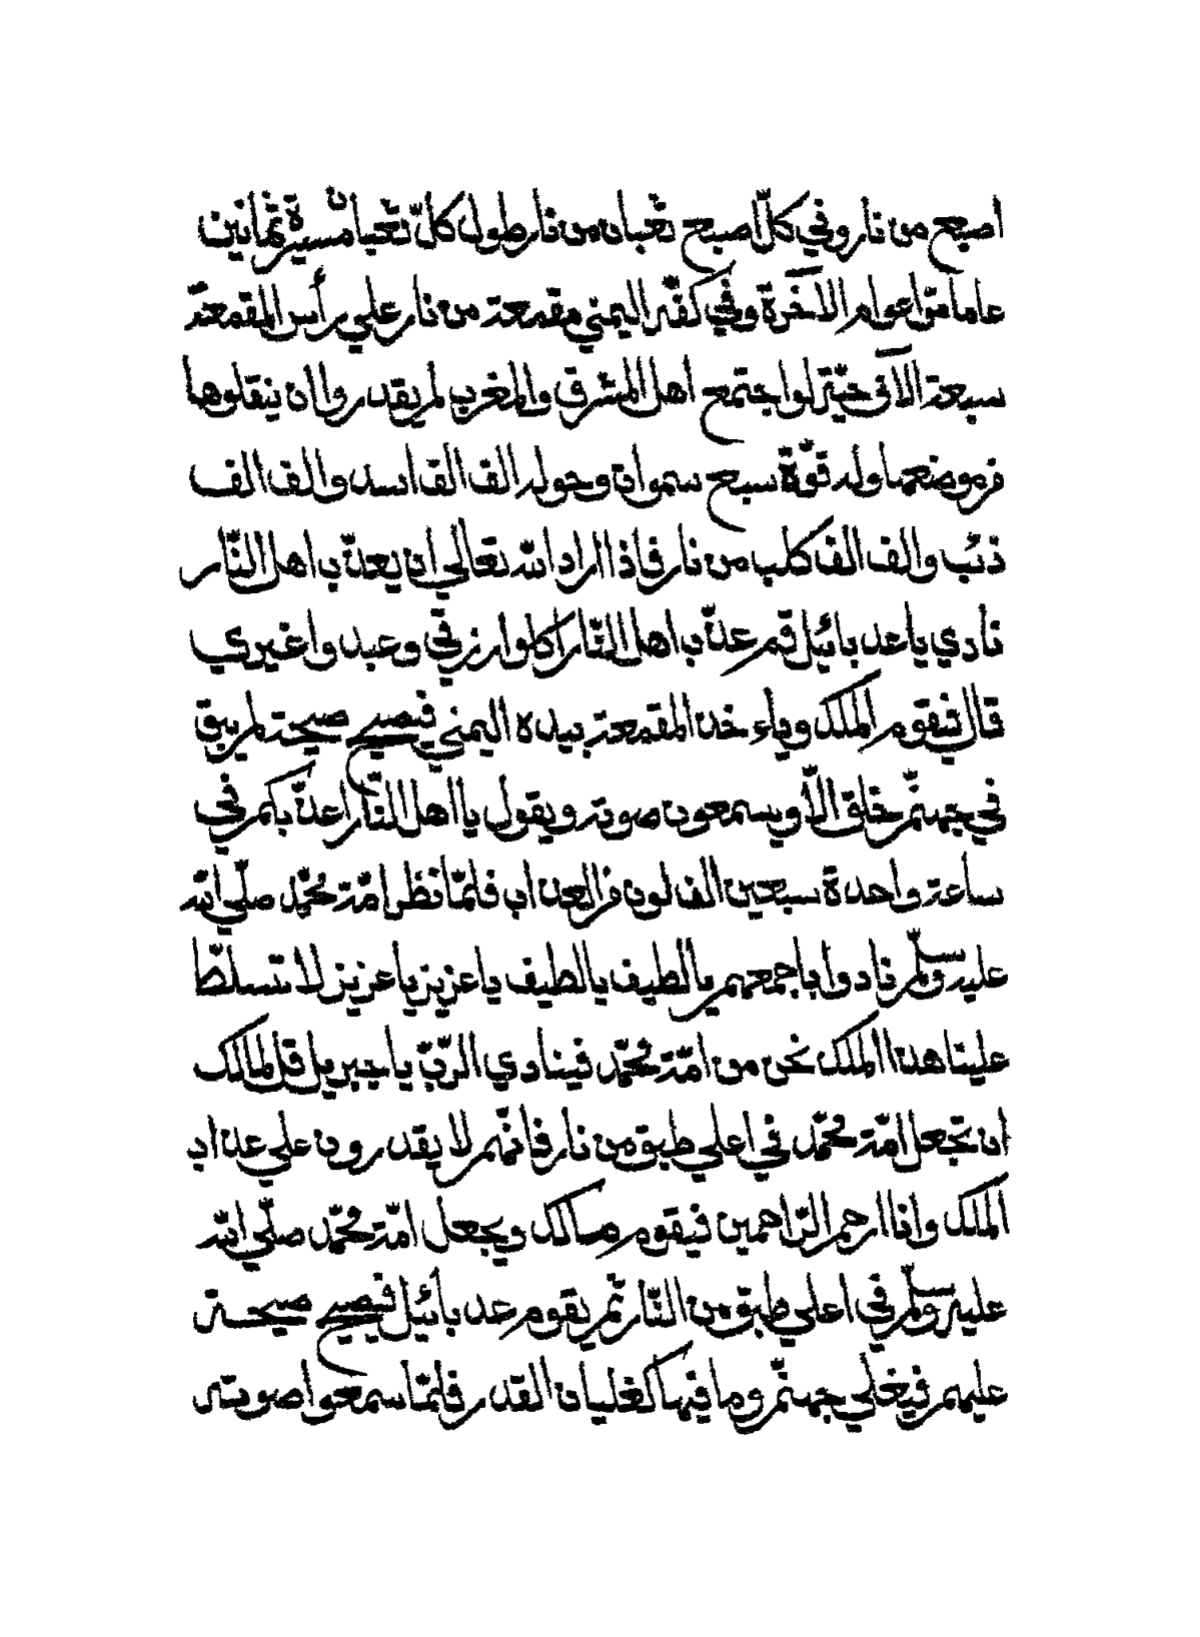 اصبع من نار وفي كلّ اصبع ثعبان من نار طول كلّ ثعبان مسيرة ثمانين
عاما من اعوام الآخرة وفي كفّه اليمني مقمعة من نار علي رأس المقمعة
سبعة الآف حيّة لو اجتمع اهل المشرق والمغرب لم يقدروا ان ينقلوها
من موضعها وله قوّة سبع سموات وحوله الف الف اسد والف الف
ذئب والف الف كلب من نار فاذا اراد الله تعالي ان يعذّب اهل النّار
نادي يا عدبائيل قم عذّب اهل النّار اكلوا رزقي وعبدوا غيري
قال فيقوم الملك وياءخذ المقمعة بيده اليمني فيصيح صيحة لم يبق
في جهنّم خلق الّا ويسمعون صوته ويقول يا اهل النّار اعذّبكم في
ساعة واحدة سبعين الف لون من العذاب فلمّا نظر امّة محمّد صلّي الله
عليه وسلّم نادوا باجمعهم يا لطيف يا لطيف يا عزيز يا عزيز لا تسلّط
علينا هذا الملك نحن من امّة محمّد فينادي الرّبّ يا جبريل قل لمالك
ان تجعل امّة محمّد في اعلي طبق من نار فانّهم لا يقدرون علي عذاب
الملك وانا ارحم الرّاحمين فيقوم مسالك ويجعل امّة محمّد صلّي الله
عليه وسلّم في اعلي طبق من النّار ثمّ يقوم عدبائيل فيصيح صيحة
عليهم فيغلي جهنّم وما فيها كغليان القدر فلمّا سمعوا صوته